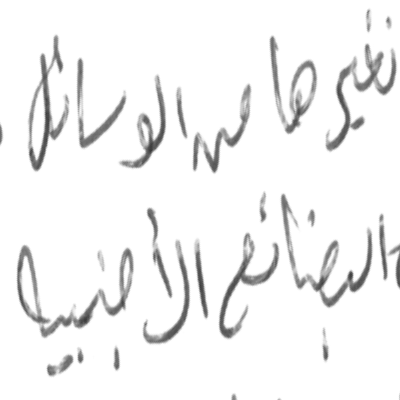 من الوسائل
البضائع الأجنبية